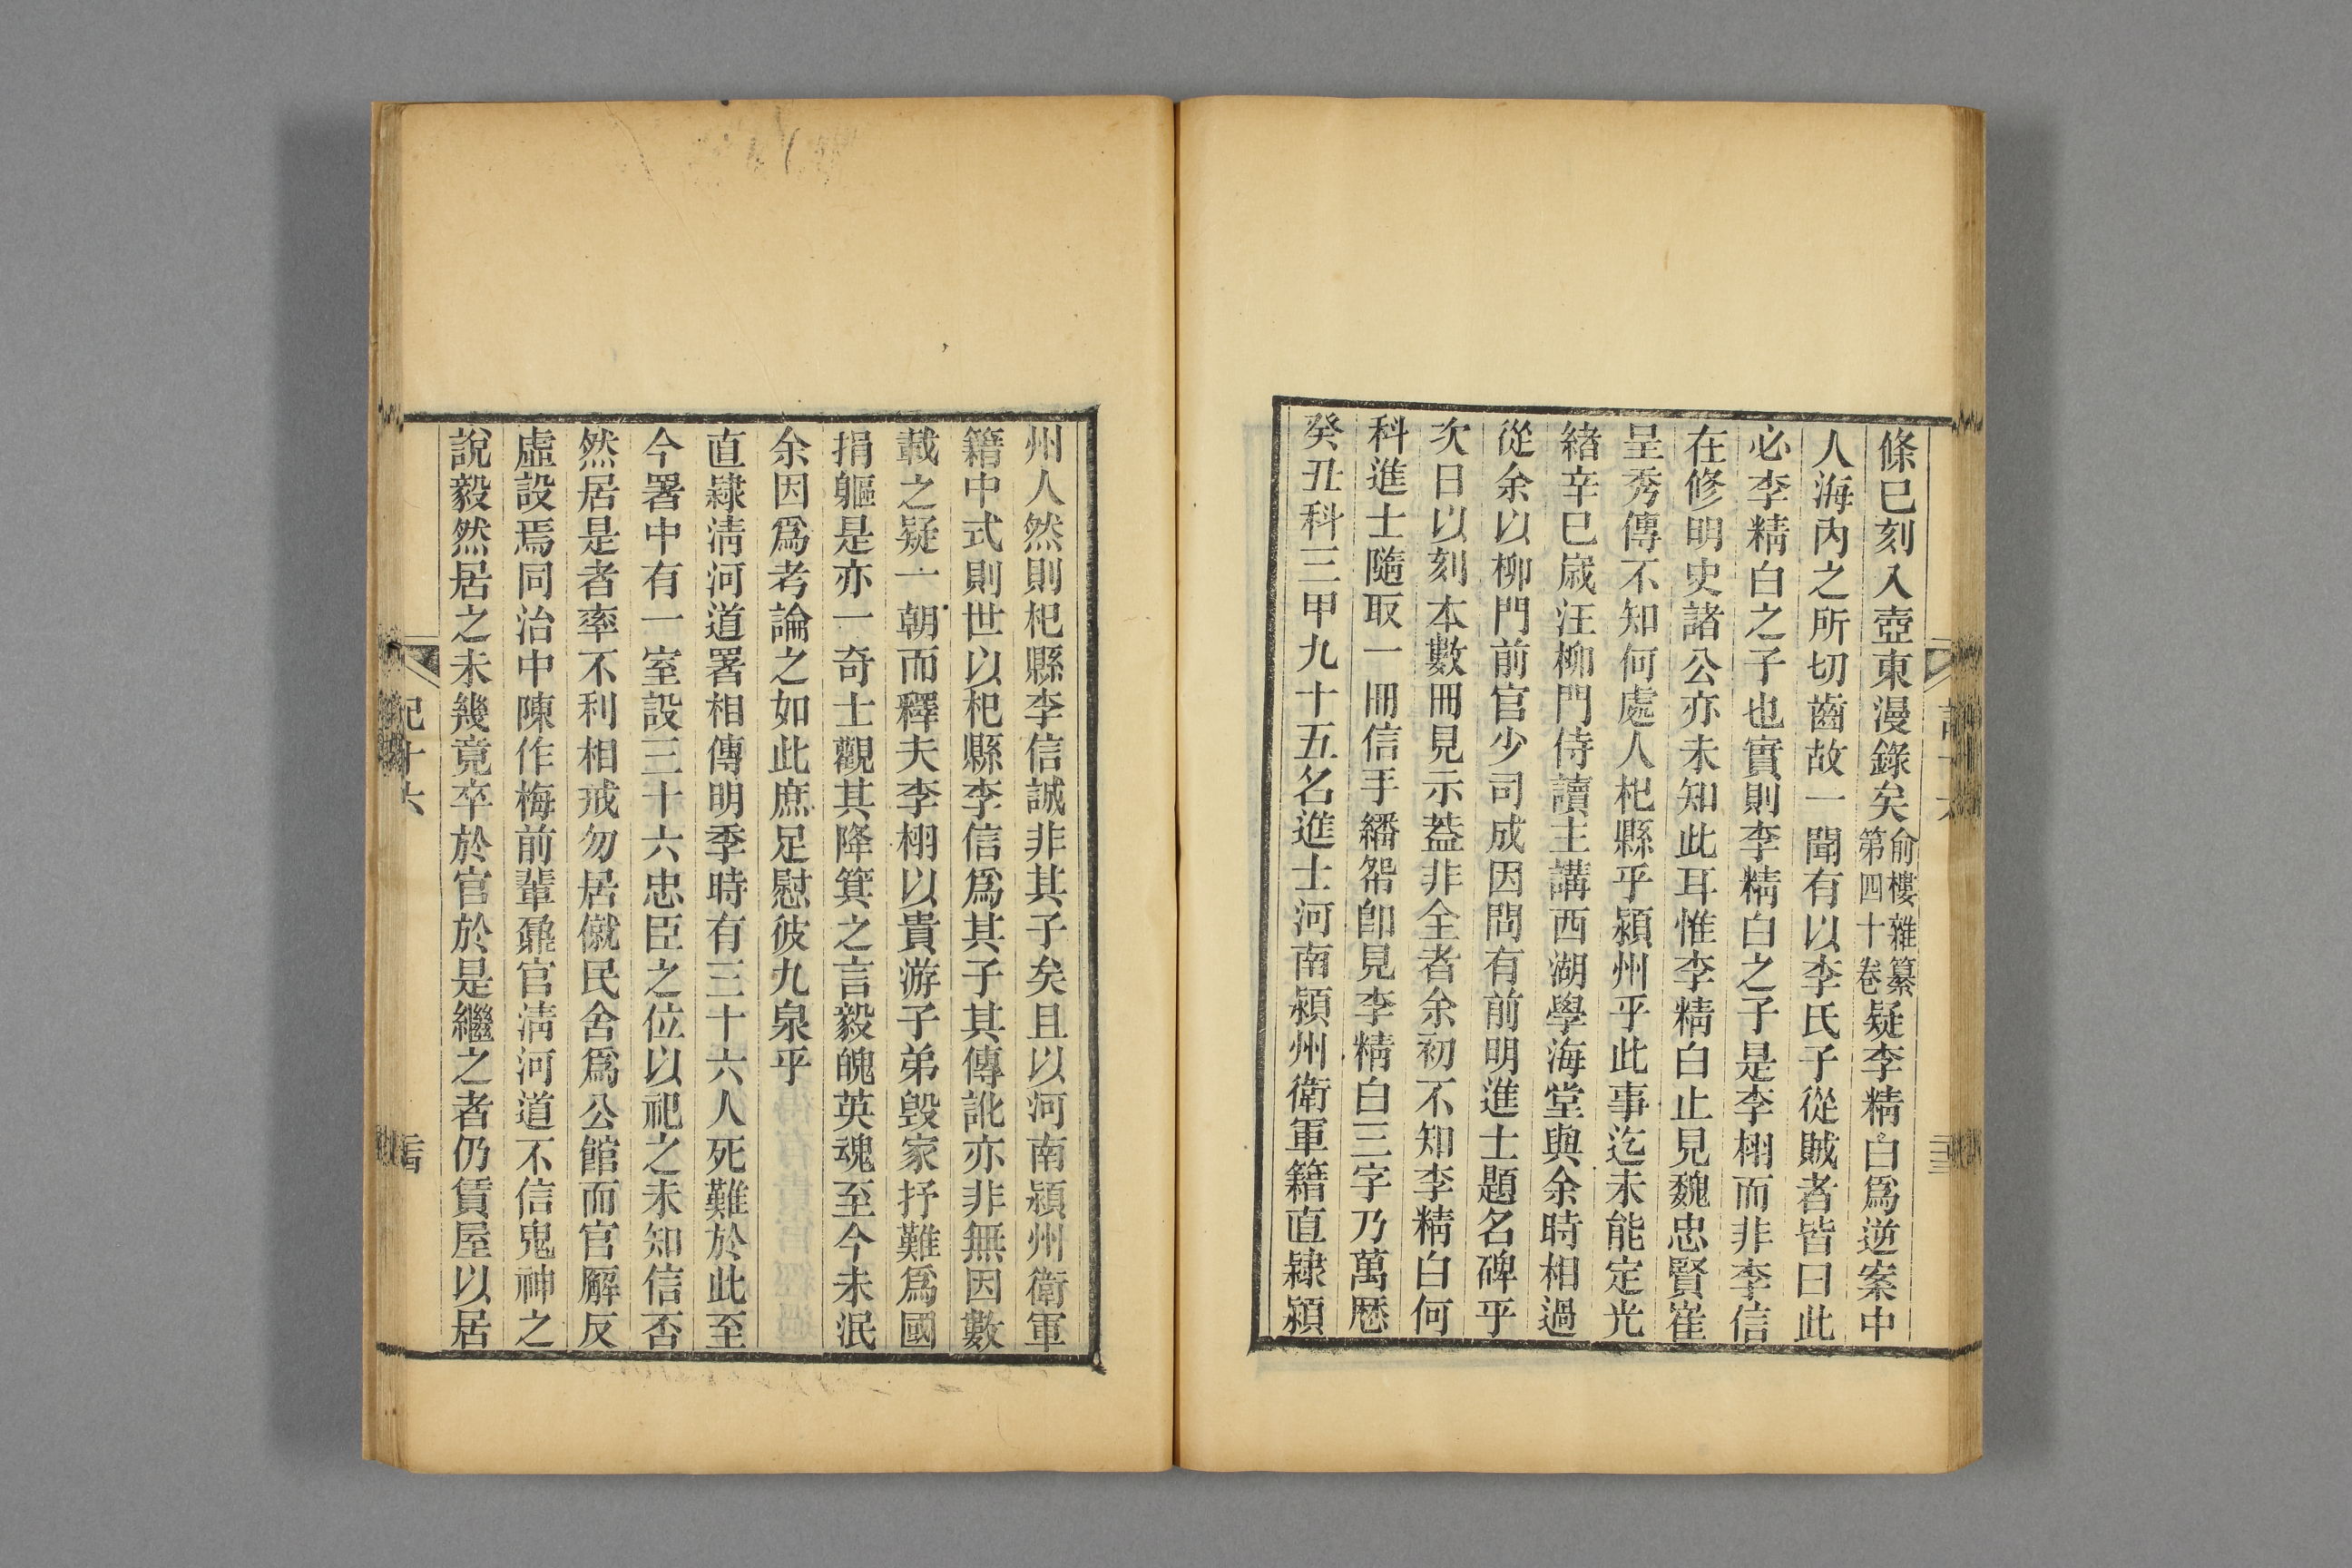 條已刻入壺東漫錄矣俞樓雜纂第四十卷疑李精白爲逆案中
人海內之所切齒故一聞有以李氏子從賊者皆曰此
必李精白之子也實則李精白之子是李栩而非李信
在修明史諸公亦未知此耳惟李精白止見魏忠賢崔
呈秀傳不知何處人杞縣乎潁州乎此事迄未能定光
緒辛巳歲汪柳門侍讀主講西湖學海堂與余時相過
從余以柳門前官少司成因問有前明進士題名碑乎
次日以刻本數冊見示蓋非全者余初不知李精白何
科進士隨取一冊信手繙帤卽見李精白三字乃萬厯
癸丑科三甲九十五名進士河南潁州衛軍籍直隸潁
州人然則杞縣李信誠非其子矣且以河南潁州衛軍
籍中式則世以杞縣李信爲其子其傳訛亦非無因數
載之疑一朝而釋夫李栩以貴游子弟毀家抒難爲國
捐軀是亦一奇士觀其降箕之言毅魄英魂至今未泯
余因爲考論之如此庶足慰彼九泉乎
直隸淸河道署相傳明季時有三十六人死難於此至
今署中有一室設三十六忠臣之位以祀之未知信否
然居是者率不利相戒勿居僦民舍爲公館而官廨反
虛設焉同治中陳作梅前輩鼐官淸河道不信鬼神之
說毅然居之未幾竟卒於官於是繼之者仍賃屋以居
記十六